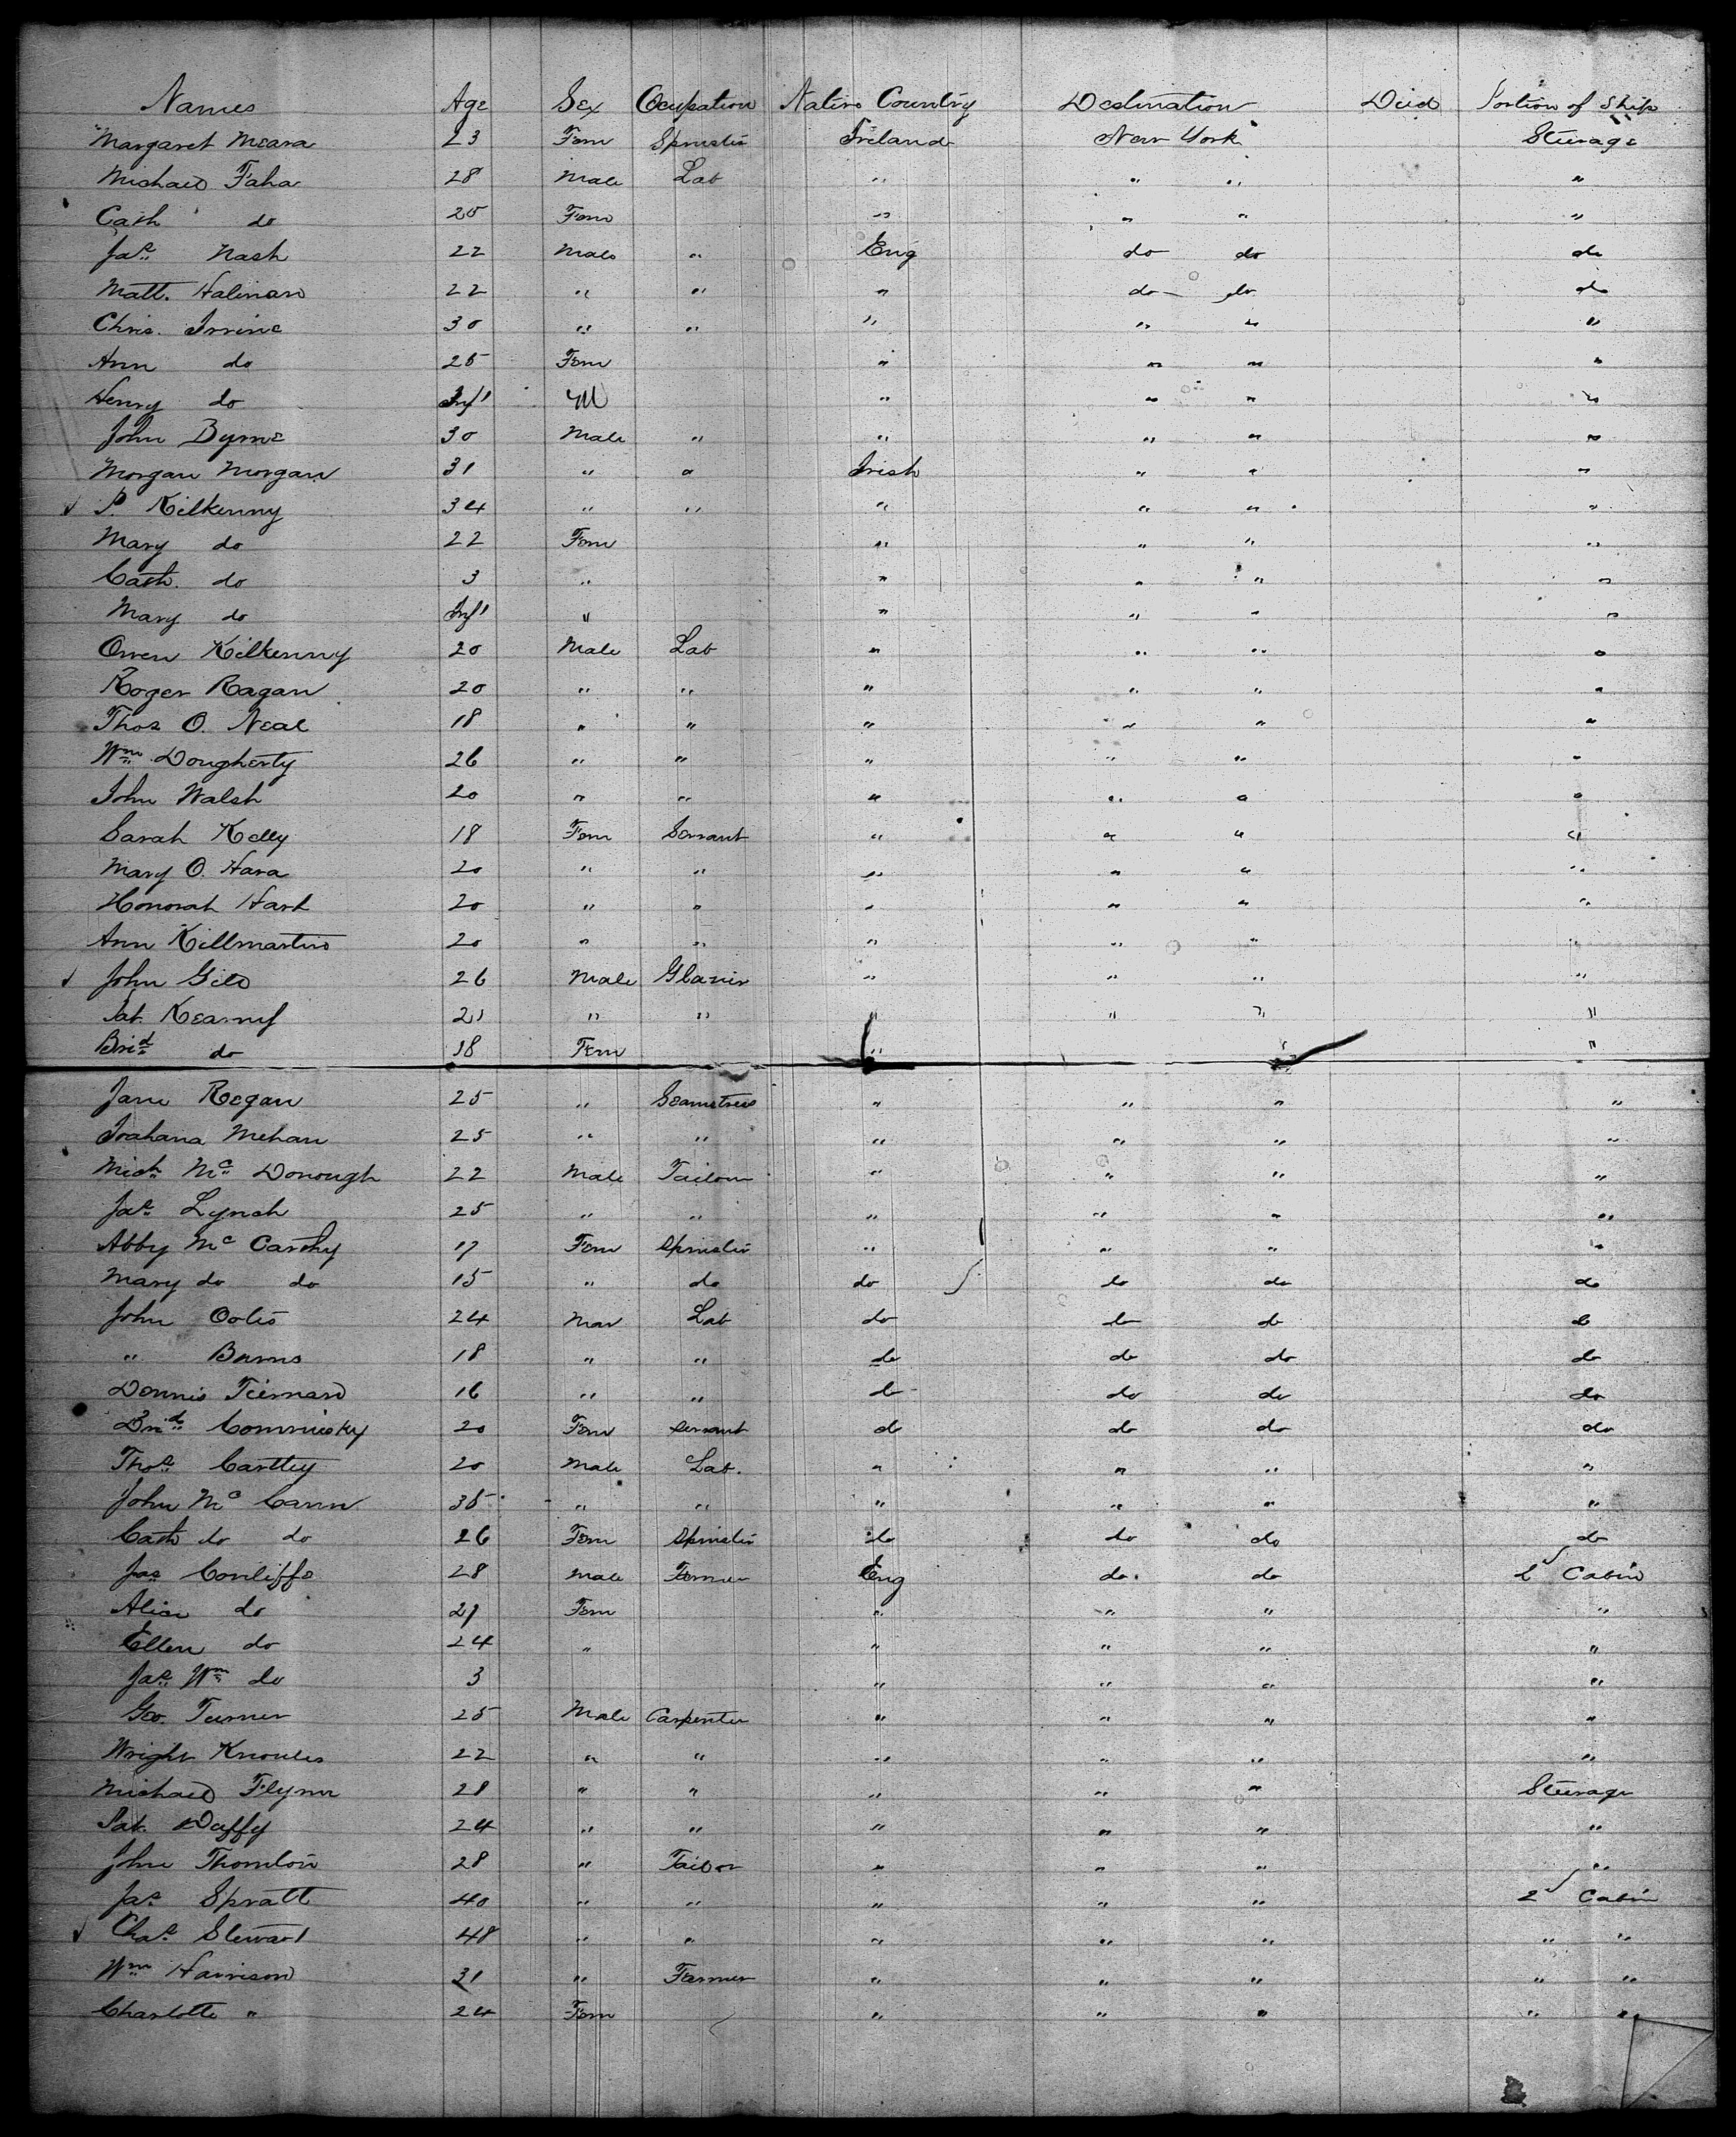 Names Age Sex Occupation Native Country Destination Died Portion of Ship
Margaret Meara 23 Fem Spinster Ireland New York Steerage
Michael Faha 28 Male Lab " " " "
Cath do 25 Fem " " " "
Jas Nash 22 Male " Eng do do do
Matt. Halinan 22 " " " do do do
Chris. Irvine 30 " " " " " "
Ann do 25 Fem " " " "
Henry do Inft M " " " "
John Byrne 30 Male " " " " "
Morgan Morgan 31 " " Irish " " "
P. Kilkenny 34 " " " " " "
Mary do 22 Fem " " " "
Cath. do 3 " " " " "
Mary do Inft " " " " "
Owen Kilkenny 20 Male Lab " " " "
Roger Ragan 20 " " " " " "
Thos O. Neal 18 " " " " " "
Wm Dougherty 26 " " " " " "
John Walsh 20 " " " " " "
Sarah Kelly 18 Fem Servant " " " "
Mary O. Hara 20 " " " " " "
Honorah Hart 20 " " " " " "
Ann Killmartin 20 " " " " " "
John Gild 26 Male Glazier " " " "
Pat Kearny 21 " " " " " "
Brid do 18 Fem " "
Jane Regan 25 " Seamstress " " " "
Mehan 25 " " " " " "
Mich Mc Donough 22 Male Tailor " " " "
Jas Lynch 25 " " " " " "
Abby Mc Carthy 17 Fem Spinster " " " "
Mary do do 15 " do do do do do
John 24 Mal Lab do do do do
" Burns 18 " " do do do do
Dennis Tiernan 16 " " do do do do
Brid Commisky 20 Fem Servant do do do do
Thos Carttey 20 Male Lab. " " " "
John Mc Cann 35 " " " " " "
Cath do do 26 Fem Spinster do do do do
Jas Conliffe 28 Male Farmer Eng do do 2d Cabin
Alice do 27 Fem " " " "
Ellen do 24 " " " " "
Jas Wm do 3 " " " "
Geo. Turner 25 Male Carpenter " " " "
Wright Knowles 22 " " " " " "
Michael Flynn 28 " " " " " Steerage
Pat. Duffy 24 " " " " " "
John Thornton 28 " Tailor " " " "
Jas Spratt 40 " " " " " 2d Cabin
Chas Stewart 48 " " " " " " "
Wm Harrison 31 " Farmer " " " " "
Charlotte " 24 Fem " " " " "